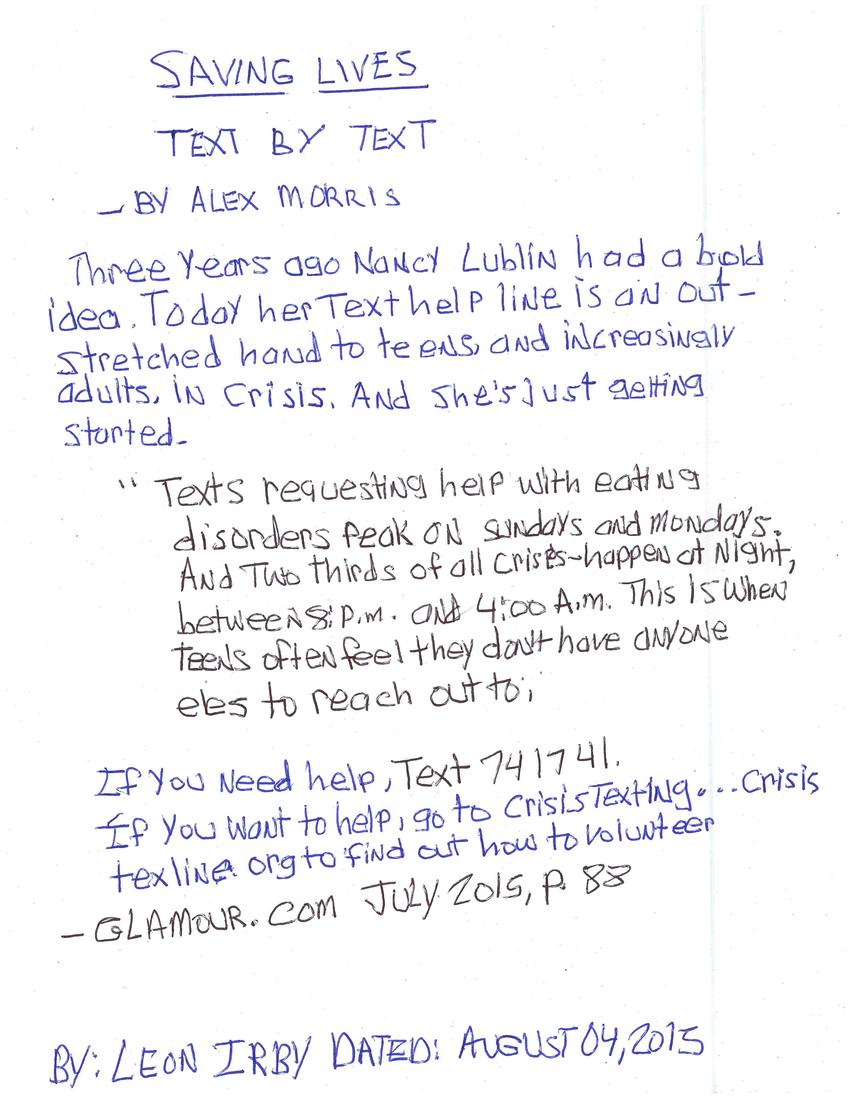 SAVING LIVES
TEXT BY TEXT
— BY ALEX MORRIS
Three Years ago Nancy Lublin had a bold
idea. Today her Text help line is an out-
stretched hand to teens, and increasingly
adults, in Crisis. And she's just getting
started.
" Texts requesting help with eating
disorders peak on sundays and mondays.
And Two thirds of all crises-happen at Night,
between 8: P.m. and 4:00 A.m. This Is when
teens often feel they don't have anyone
eles to reach out to;
If you Need help, Text 741741.
If you want to help, go to CrisisTexting...Crisis
texline.org to find out how to volunteer
— GLAMOUR.COM JULY 2015, P. 88
BY: LEON IRBY DATED: AUGUST 04, 2015